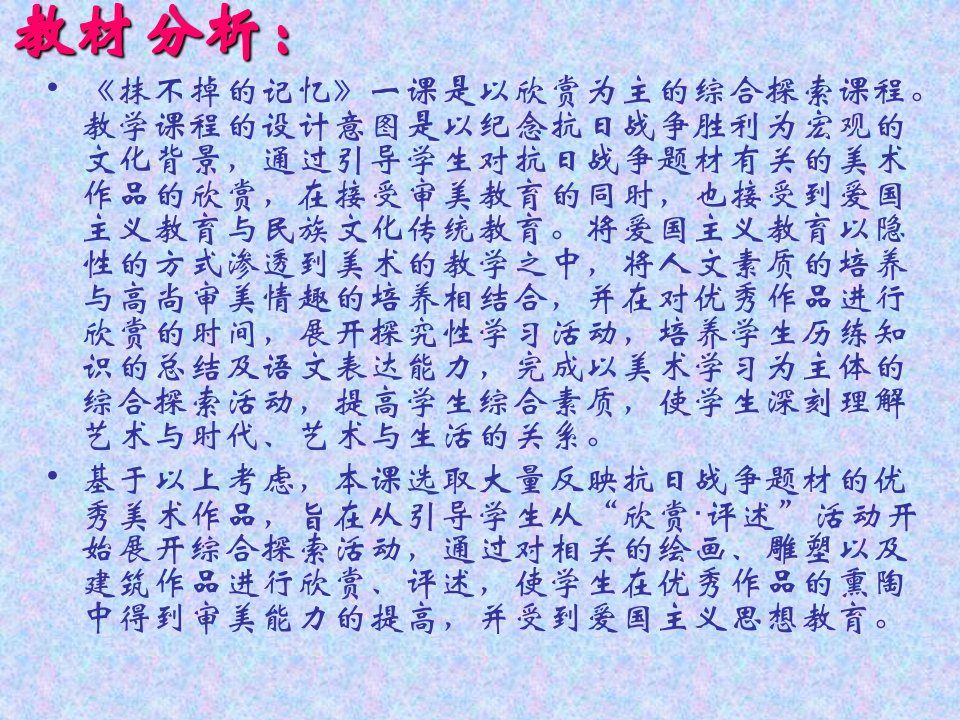 教材分析：
• 《抹不掉的记忆》一课是以欣赏为主的综合探索课程。
教学课程的设计意图是以纪念抗日战争胜利为宏观的
文化背景，通过引导学生对抗日战争题材有关的美术
作品的欣赏，在接受审美教育的同时，也接受到爱国
主义教育与民族文化传统教育。将爱国主义教育以隐
性的方式渗透到美术的教学之中，将人文素质的培养
与高尚审美情趣的培养相结合，并在对优秀作品进行
欣赏的时间，展开探究性学习活动，培养学生历练知
识的总结及语文表达能力，完成以美术学习为主体的
综合探索活动，提高学生综合素质，使学生深刻理解
艺术与时代、艺术与生活的关系。
• 基于以上考虑，本课选取大量反映抗日战争题材的优
秀美术作品，旨在从引导学生从“欣赏·评述”活动开
始展开综合探索活动，通过对相关的绘画、雕塑以及
建筑作品进行欣赏、评述，使学生在优秀作品的熏陶
中得到审美能力的提高，并受到爱国主义思想教育。